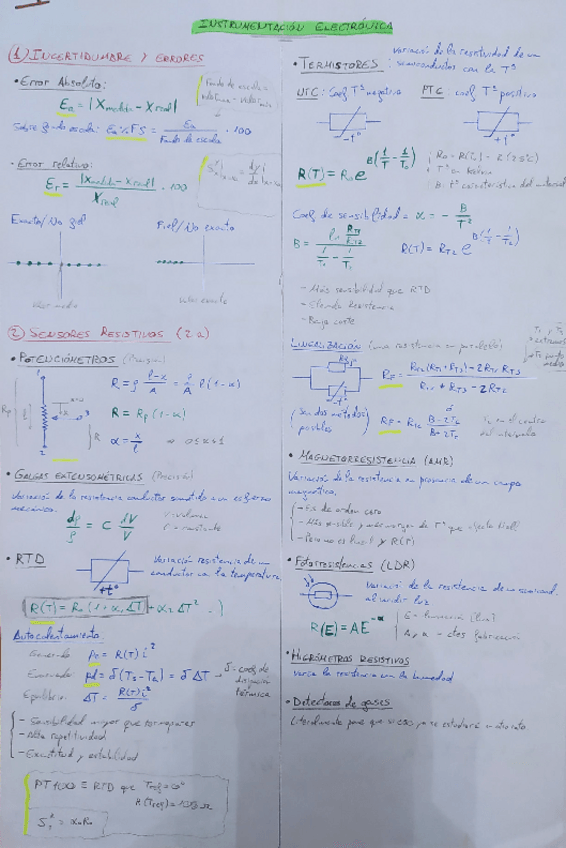 INSTRUMENTACIÓN ELECTRÓNICA
① INCERTIDUMBRE Y ERRORES
• Error Absoluto:
Ea = |Xmedida - Xreal|
Sobre fondo escala: Ea%FS = Ea / Fondo de escala · 100
Fondo de escala =
• Error relativo:
Er = |Xmedida - Xreal| / Xreal · 100
Exacto/No fiel
Fiel/No exacto
② SENSORES RESISTIVOS (2a)
• POTENCIÓMETROS (Precisión)
R = ρ (l-x)/A = ρ/A l(1-α)
R = Rp(1-α)
α = x/l ⇒ 0≤α≤1
• GALGAS EXTENSOMÉTRICAS (Precisión)
Variación de la resistencia conductor sometido a un esfuerzo
mecánico.
dρ/ρ = C dV/V
V = volumen
• RTD
+t°
Variación resistencia de un
conductor con la temperatura
R(T) = R0 (1 + α1 ΔT + α2 ΔT² ...)
Autocalentamiento:
Generado: Pc = R(T) i²
Evacuado: Pd = δ(Ts - Ta) = δ ΔT → δ - coef. de
disipación
térmica
Equilibrio: ΔT = R(T) i² / δ
- Sensibilidad mayor que termopares
- Alta repetitividad
- Exactitud y estabilidad
≡ RTD que Tref = 0°
• TERMISTORES:
variación de la resistividad de un
semiconductor con la Tª
NTC: Coef Tª negativo
PTC: coef Tª positivo
-t°
+t°
R(T) = R0 e^B(1/T - 1/T0)
B = tª característica del material
Coef de sensibilidad = α = - B/T²
R(T) = RT2 e^B(1/T - 1/T2)
- Más sensibilidad que RTD
- Elevada Resistencia
- Bajo coste
LINEALIZACIÓN (una resistencia en paralelo)
Rp = RT2(RT1 + RT3) - 2RT1 RT3 / RT1 + RT3 - 2RT2
(Son dos métodos
posibles)
Rp = RTc B - 2Tc / B + 2Tc
Tc en el centro
del intervalo
• MAGNETORRESISTENCIA (AMR)
Variación de la resistencia en presencia de un campo
magnético.
- Es de orden cero
- Más sensible y mayor margen de Tª que efecto Hall
• Fotorresistencias (LDR)
Variación de la resistencia de un semicond.
al incidir luz
R(E) = AE^-α
A, α - ctes fabricación
• HIGRÓMETROS RESISTIVOS
varía la resistencia con la humedad
• Detectores de gases